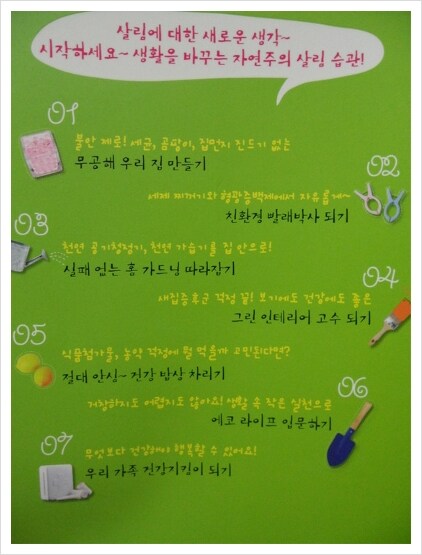 살림에 대한 새로운 생각~
시작하세요~ 생활을 바꾸는 자연주의 살림 습관!
01
불안 제로! 세균, 곰팡이, 집먼지 진드기 없는
무공해 우리 집 만들기
02
세제 찌꺼기와 형광증백제에서 자유롭게~
친환경 빨래박사 되기
03
천연 공기청정기, 천연 가습기를 집 안으로!
실패 없는 홈 가드닝 따라잡기
04
새집증후군 걱정 끝! 보기에도 건강에도 좋은
그린 인테리어 고수 되기
05
식품첨가물, 농약 걱정에 뭘 먹을까 고민된다면?
절대 안심~ 건강 밥상 차리기
06
거창하지도 어렵지도 않아요! 생활 속 작은 실천으로
에코 라이프 입문하기
07
무엇보다 건강해야 행복할 수 있어요!
우리 가족 건강지킴이 되기